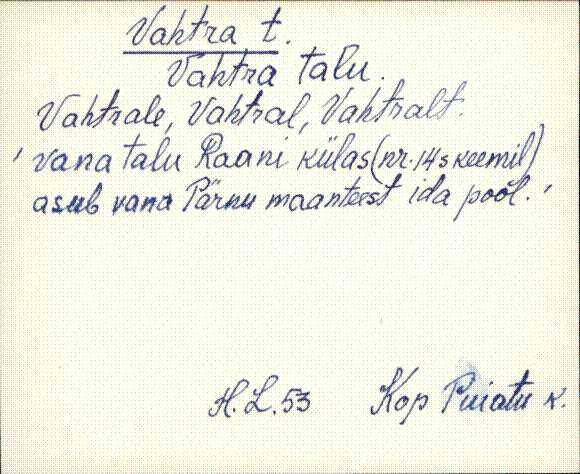 Vahtra t.
Vahtra talu.
Vahtrale, Vahtral, Vahtralt.
' vana talu Raani külas (nr. 14 skeemil)
asub vana Pärnu maanteest ida pool. '
H. L. 53 Kop Puiatu k.